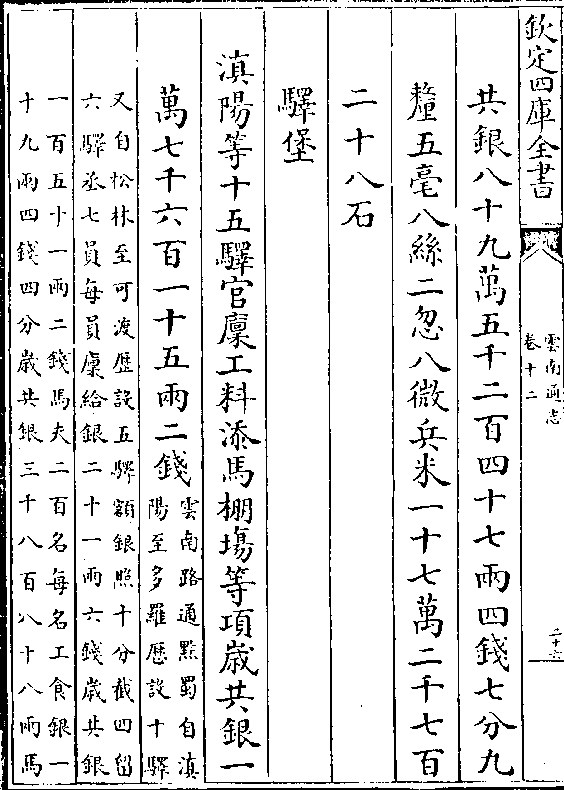 欽定四庫全書
雲南通志
卷十二
二十六
共銀八十九萬五千二百四十七兩四錢七分九
釐五毫八絲二忽八微兵米一十七萬二千七百
二十八石
驛堡
滇陽等十五驛官廩工料添馬棚塲等項歳共銀一
萬七千六百一十五兩二錢
雲南路通黔蜀自滇
陽至多羅歴設十驛
又自松林至可渡歴設五驛額銀照十分截四留
六驛丞七員每員廩給銀二十一兩六錢歳共銀
一百五十一兩二錢馬夫二百名每名工食銀一
十九兩四錢四分歳共銀三千八百八十八兩馬